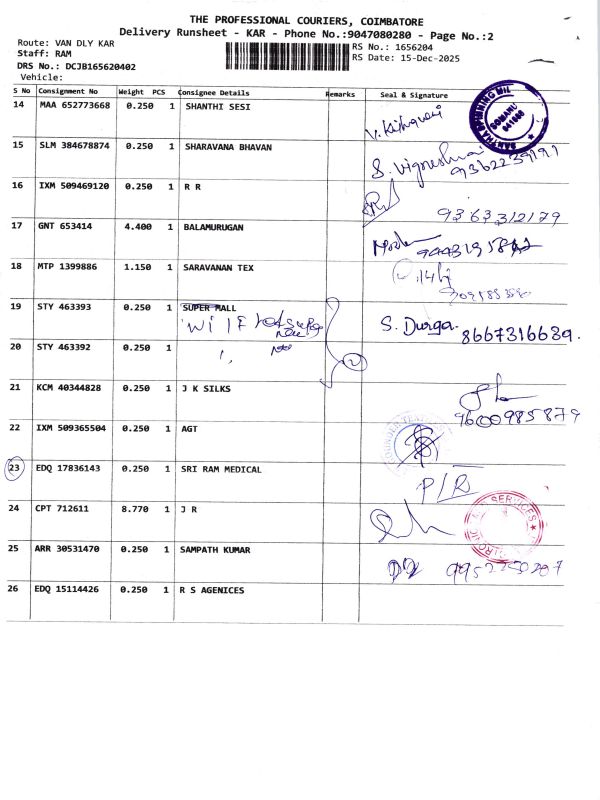 THE PROFESSIONAL COURIERS, COIMBATORE
Delivery Runsheet - KAR - Phone No.:9047080280 - Page No.:2
Route: VAN DLY KAR
Staff: RAM
DRS No.: DCJB165620402
Vehicle:
RS No.: 1656204
RS Date: 15-Dec-2025
S No Consignment No Weight PCS Consignee Details Remarks Seal & Signature
14 MAA 652773668 0.250 1 SHANTHI SESI
15 SLM 384678874 0.250 1 SHARAVANA BHAVAN S. Vignesh
16 IXM 509469120 0.250 1 R R
9363312179
17 GNT 653414 4.400 1 BALAMURUGAN
18 MTP 1399886 1.150 1 SARAVANAN TEX
19 STY 463393 0.250 1 SUPER MALL S. Durga 8667316639.
20 STY 463392 0.250 1 2
21 KCM 40344828 0.250 1 J K SILKS
9600985879
22 IXM 509365504 0.250 1 AGT
23 EDQ 17836143 0.250 1 SRI RAM MEDICAL
P/R
24 CPT 712611 8.770 1 J R
SERVICES
25 ARR 30531470 0.250 1 SAMPATH KUMAR
26 EDQ 15114426 0.250 1 R S AGENICES